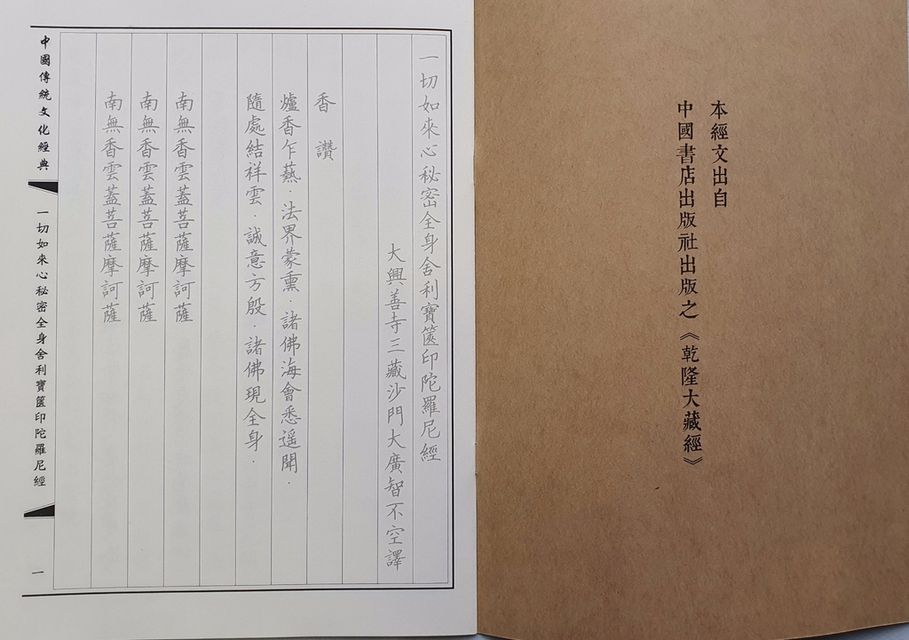 本經文出自
中國書店出版社出版之《乾隆大藏經》
一切如來心秘密全身舍利寶篋印陀羅尼經
大興善寺三藏沙門大廣智不空譯
香讚
爐香乍爇．法界蒙熏．諸佛海會悉遥聞．
隨處結祥雲．誠意方殷．諸佛現全身．
南無香雲蓋菩薩摩訶薩
南無香雲蓋菩薩摩訶薩
南無香雲蓋菩薩摩訶薩
中國傳統文化經典
一切如來心秘密全身舍利寶篋印陀羅尼經
一